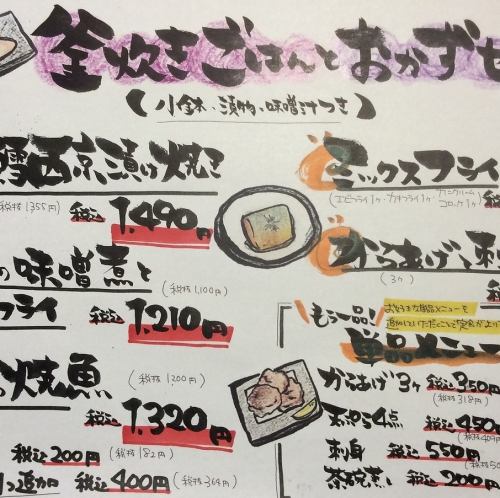 釜炊きごはんとおかずセ
【小鉢・漬物・味噌汁つき】
西京漬け焼き
(税抜1355円) 税込1,490円
の味噌煮と
(税抜1,100円)
フライ 税込1,210円
の焼魚 (税抜1,200円)
税込1,320円
税込200円 (税抜182円)
追加 税込400円 (税抜364円)
ミックスフライ
(エビフライ1ヶ・カキフライ1ヶ・カニクリームコロッケ1ヶ) 税込
からあげと刺
(3ヶ) 税込
もう一品! お好きな単品メニューを
追加していただくことで定食が
単品メニュー
からあげ3ヶ 税込350円
(税抜318円)
天ぷら4点 税込450円
(税抜409円
刺身 税込550円
(税抜50
茶碗蒸し 税込200円